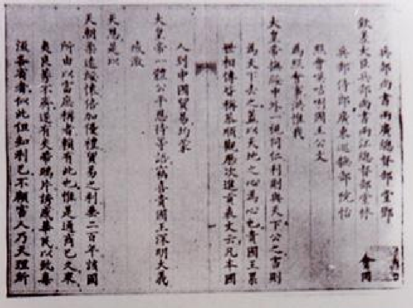 兵部尚書兩廣總督部堂鄧
欽差大臣兵部尚書兩江總督部堂林
兵部侍郎廣東巡撫部院怡 會同
照會𠸄咭唎國王公文
為照會事洪惟我
大皇帝撫綏中外一視同仁利則與天下公之害則
為天下去之蓋以天地之心為心也貴國王累
世相傳皆稱恭順觀歷次進貢表文云凡本國
人到中國貿易均蒙
大皇帝一體公平恩待等語竊喜貴國王深明大義
感激
天恩是以
天朝柔遠綏懷倍加優禮貿易之利垂二百年該國
所由以富庶稱者賴有此也惟是通商已久衆
夷良莠不齊遂有夾帶鴉片誘惑華民以致毒
流各省者似此但知利己不顧害人乃天理所